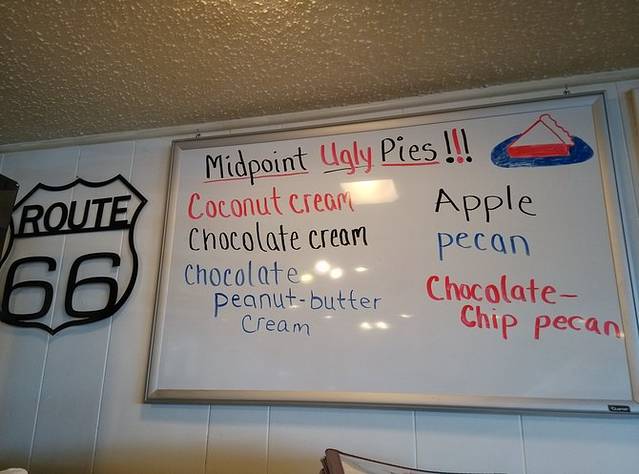 ROUTE
66
Midpoint Ugly Pies!!!
Coconut cream
Chocolate cream
Chocolate
peanut-butter
Cream
Apple
pecan
Chocolate-
Chip pecan